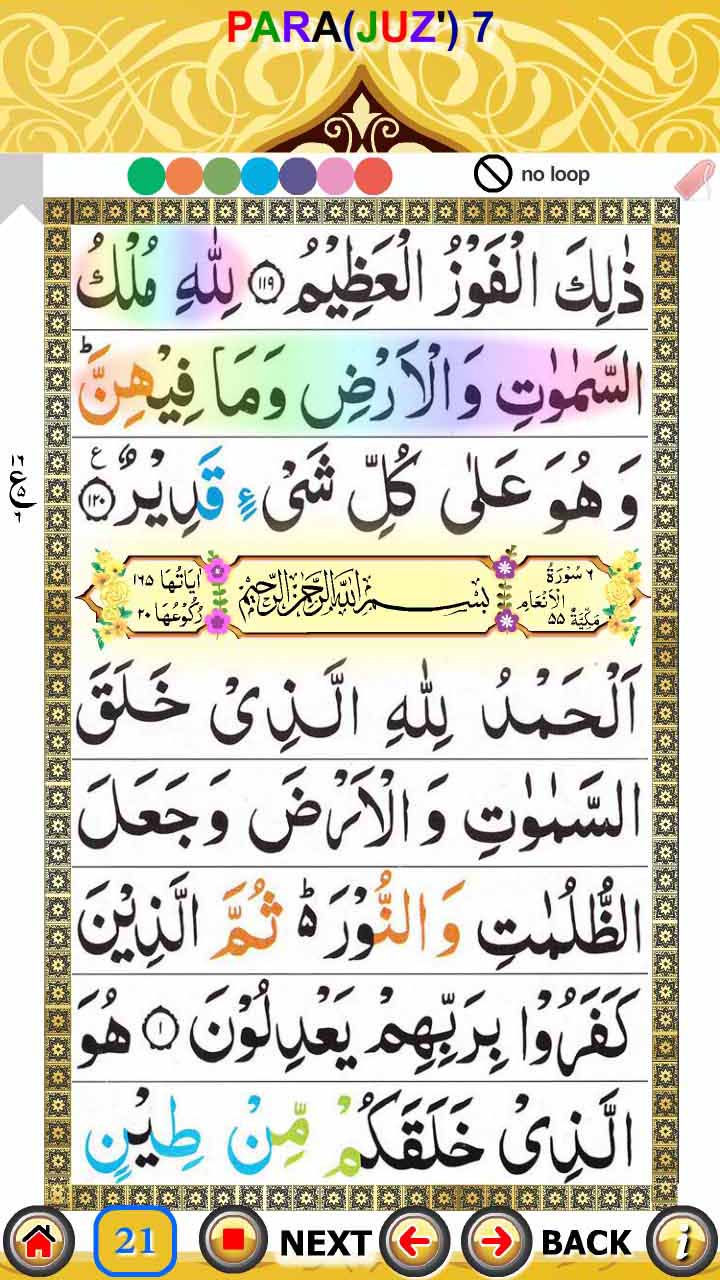 PARA(JUZ') 7
no loop
ذٰلِكَ الْفَوْزُ الْعَظِيْمُ ۝۱۱۹ لِلّٰهِ مُلْكُ
السَّمٰوٰتِ وَالْاَرْضِ وَمَا فِيْهِنَّ ؕ
وَ هُوَ عَلٰى كُلِّ شَىْءٍ قَدِيْرٌ ۝۱۲۰ ع
۶ سُوْرَةُ الْاَنْعَامِ مَكِّيَّةٌ ۵۵
بِسْمِ اللّٰهِ الرَّحْمٰنِ الرَّحِيْمِ
اٰيَاتُهَا ۱۶۵ رُكُوْعُهَا ۲۰
اَلْحَمْدُ لِلّٰهِ الَّذِىْ خَلَقَ
السَّمٰوٰتِ وَ الْاَرْضَ وَجَعَلَ
الظُّلُمٰتِ وَالنُّوْرَ ۥؕ ثُمَّ الَّذِيْنَ
كَفَرُوْا بِرَبِّهِمْ يَعْدِلُوْنَ ۝۱ هُوَ
الَّذِىْ خَلَقَكُمْ مِّنْ طِيْنٍ
21
NEXT
BACK
i